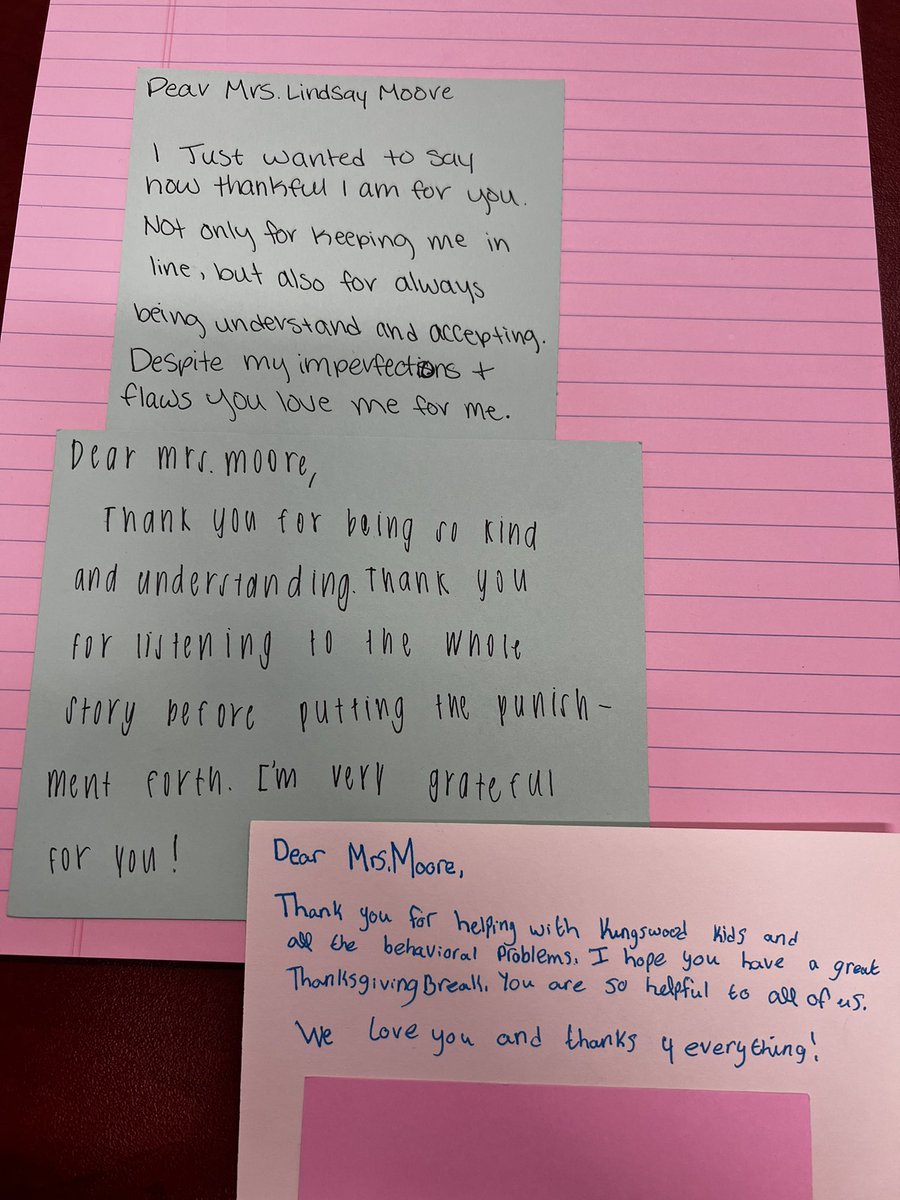 Dear Mrs. Lindsay Moore
I Just wanted to say
how thankful I am for you.
Not only for keeping me in
line, but also for always
being understand and accepting.
Despite my imperfections +
flaws you love me for me.
Dear mrs. moore,
Thank you for being so kind
and understanding. Thank you
for listening to the whole
story before putting the punish-
ment forth. I'm very grateful
for you!
Dear Mrs. Moore,
Thank you for helping with Kungswood kids and
all the behavioral problems. I hope you have a great
Thanksgiving Break. You are so helpful to all of us.
We love you and thanks 4 everything!